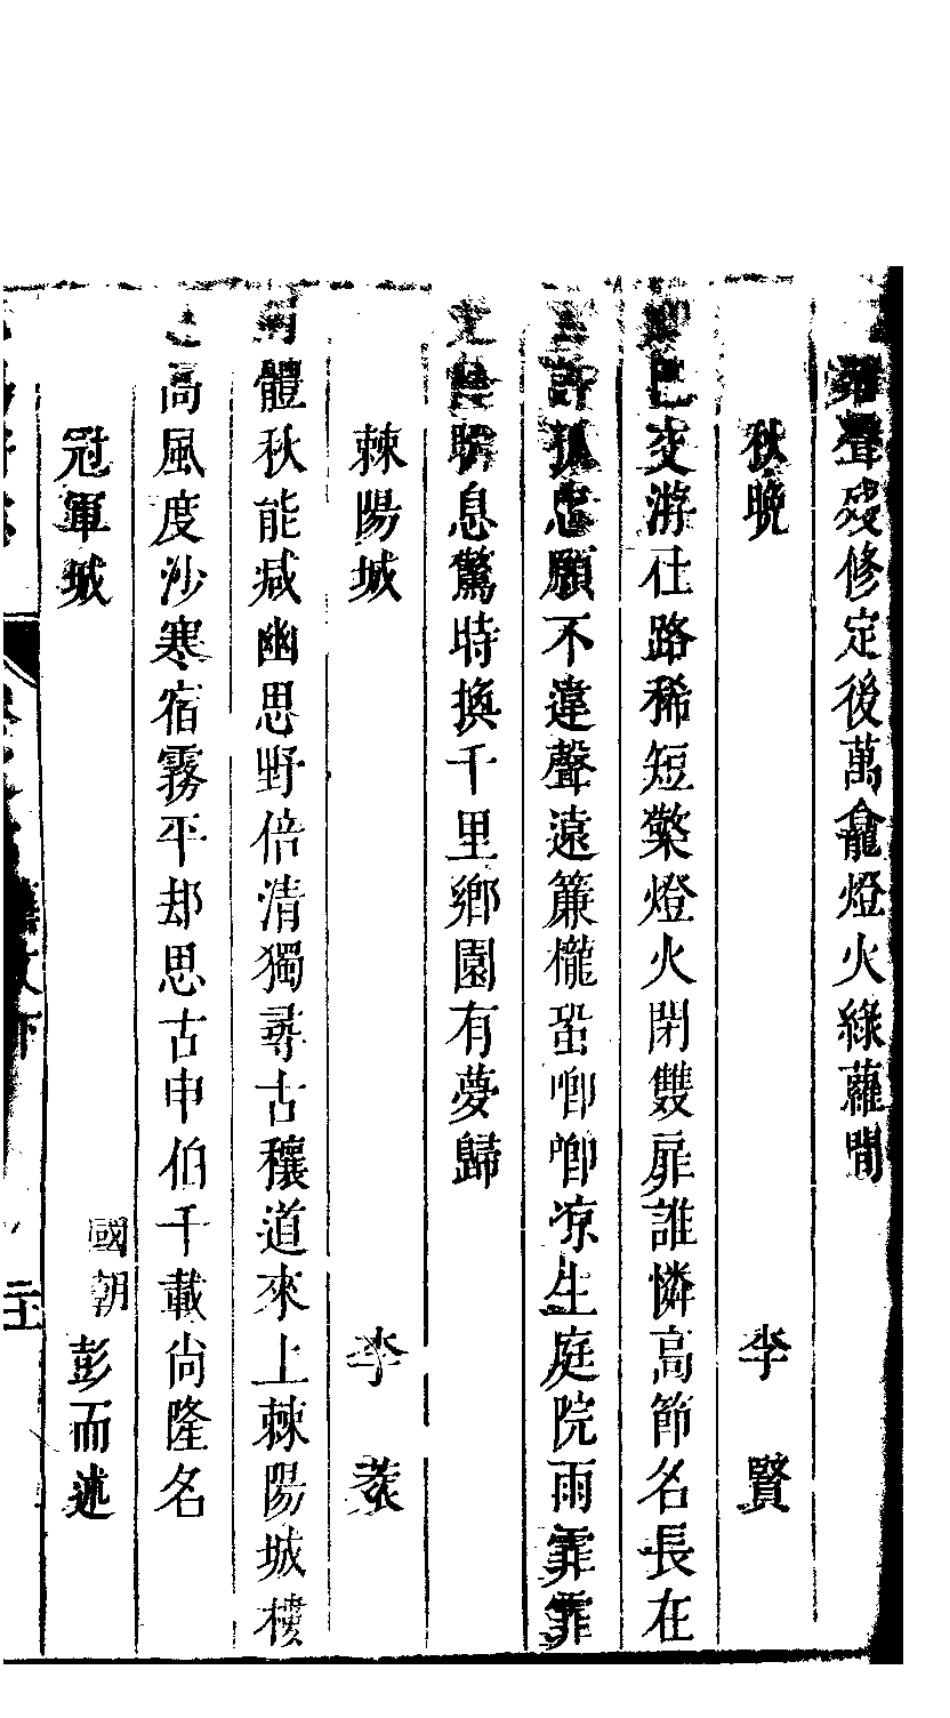 聲殘修定後萬龕燈火綠蘿間
秋晚 李賢
已交游仕路稀短檠燈火閉雙扉誰憐高節名長在
許孤忠願不違聲遠簾櫳蛩唧唧凉生庭院雨霏霏
息驚時換千里鄉園有夢歸
棘陽城 李蓘
體秋能减幽思野倍清獨尋古穰道來上棘陽城樓
高風度沙寒宿霧平却思古申伯千載尚隆名
冠軍城 國朝彭而述